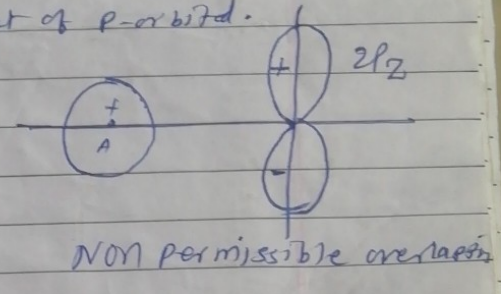 of p-orbital.
+
2Pz
+
A
-
Non permissible overlapin